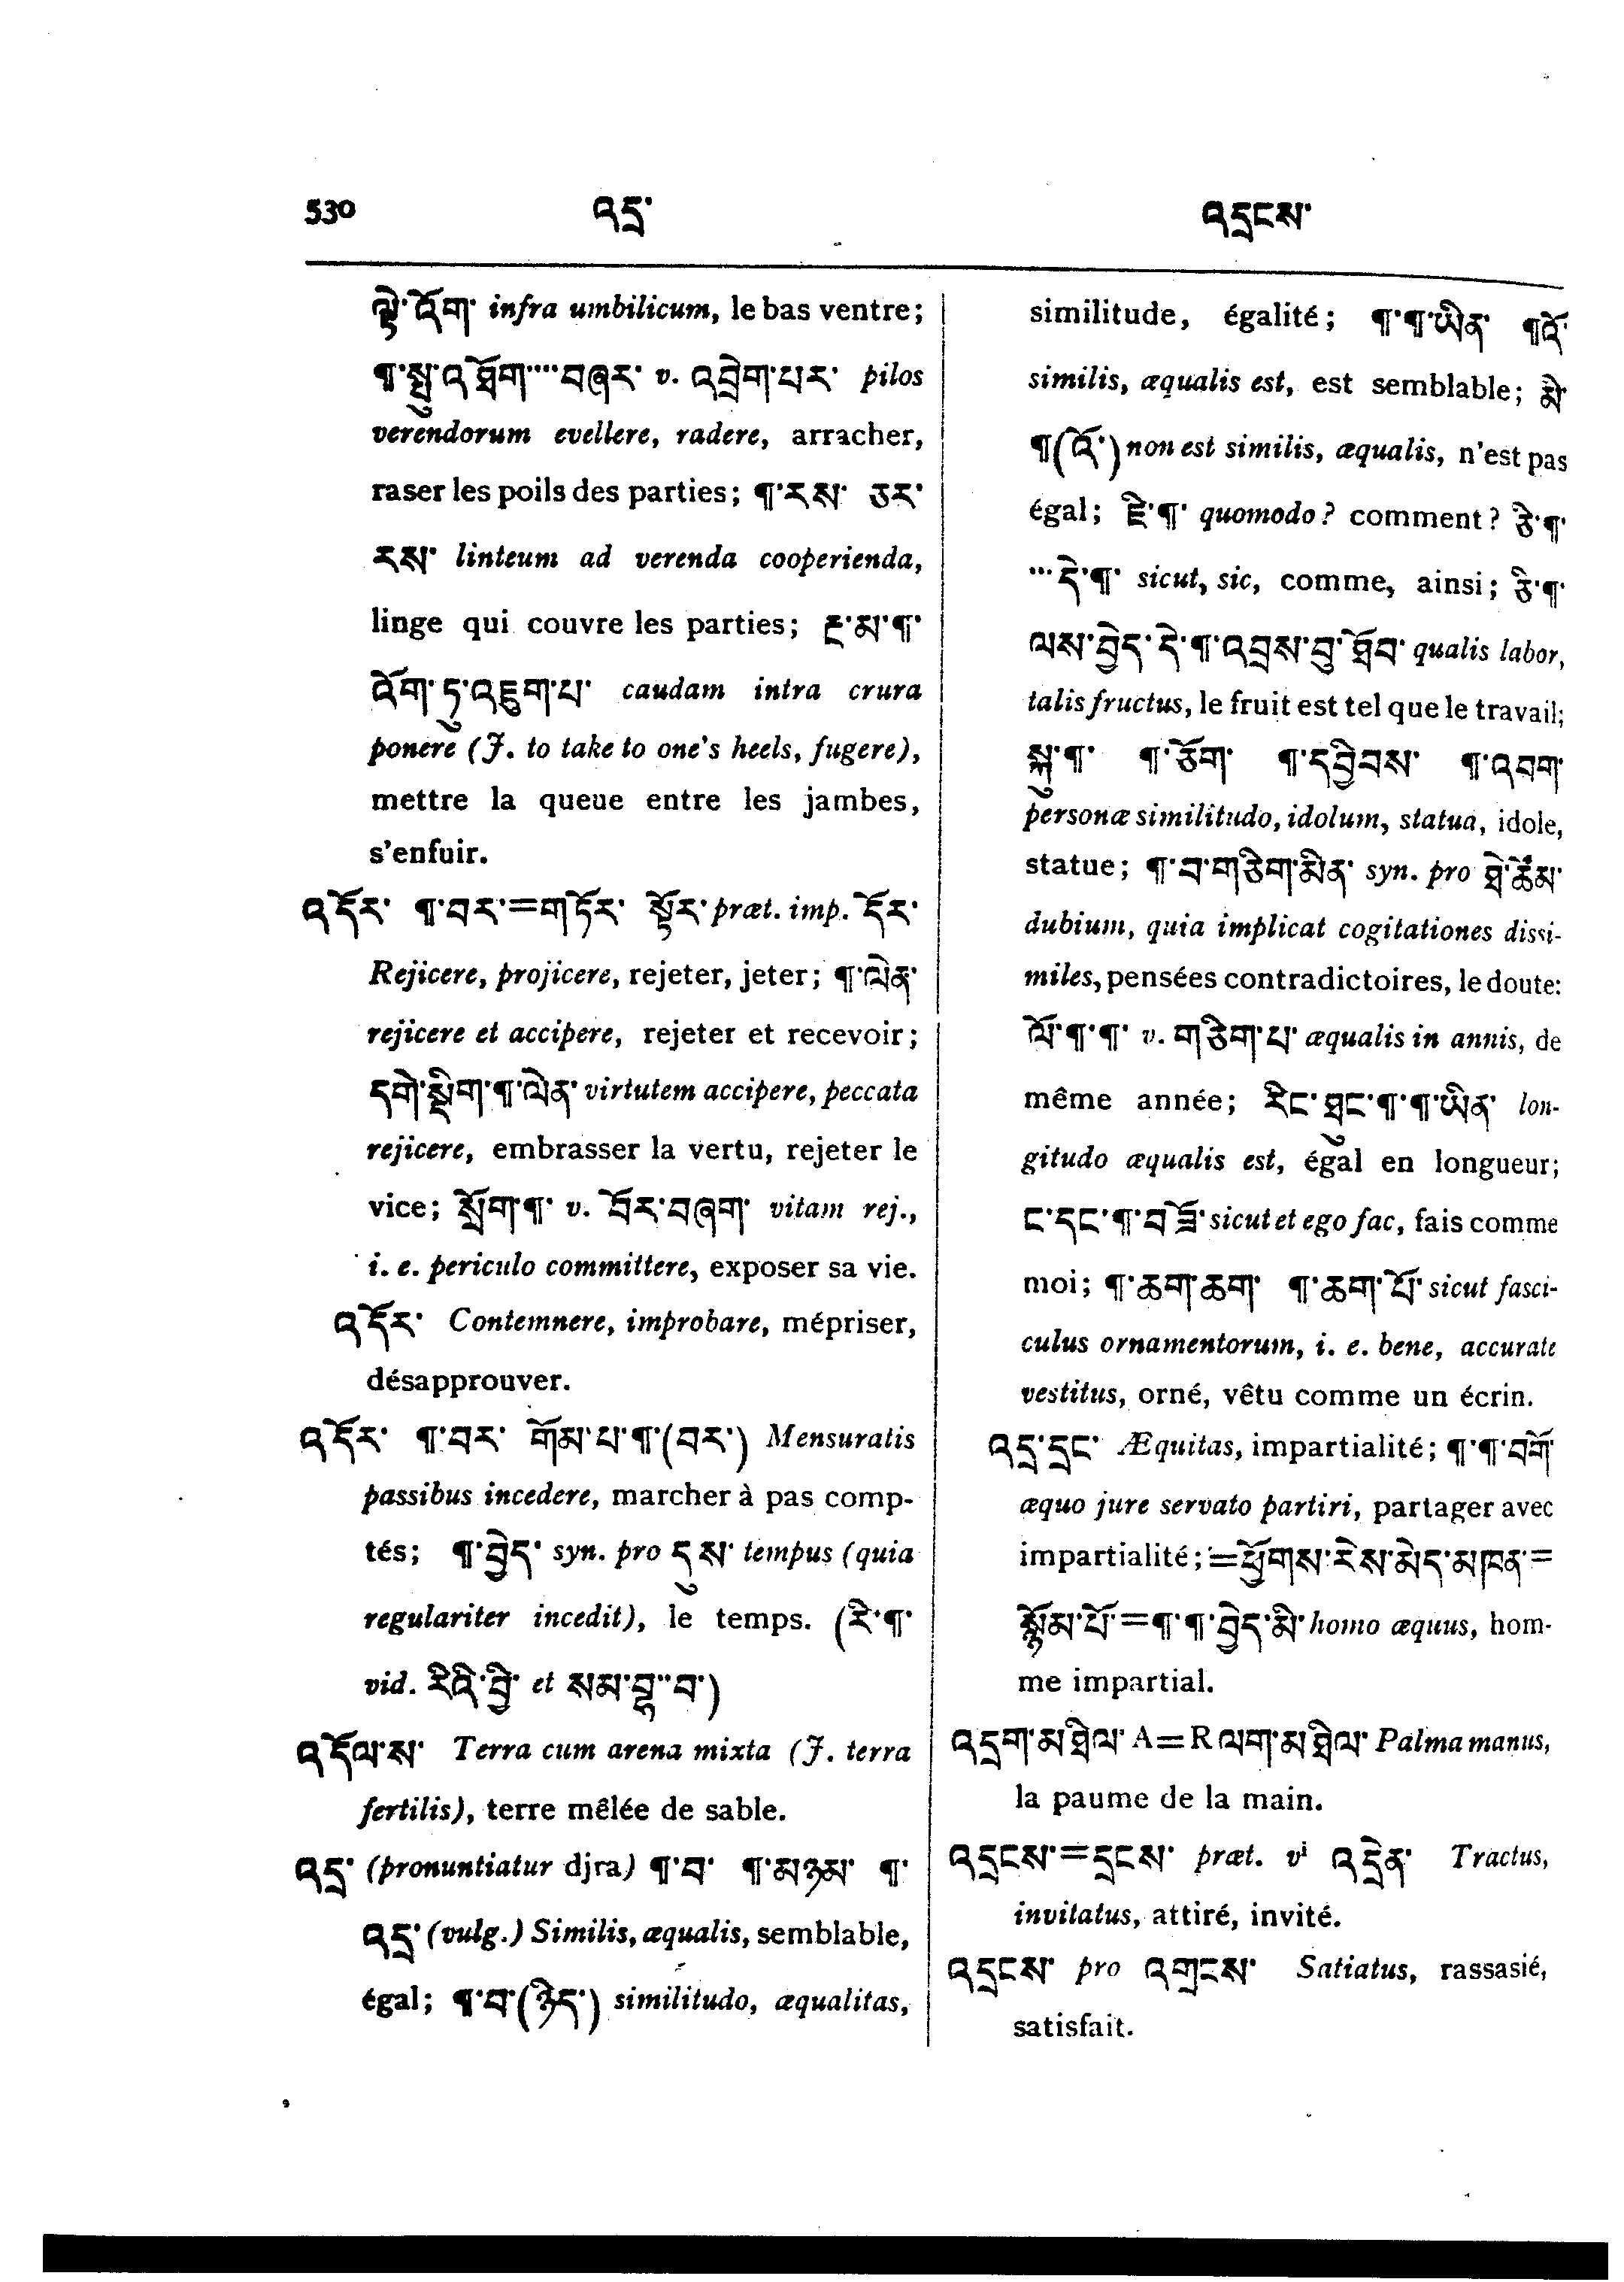 530 འདྲ་ འདྲངས་
ལྟེ་འོག་ infra umbilicum, le bas ventre;
¶་སྤུ་འཐོག་...་བཞར་ v. འབྲེག་པར་ pilos
verendorum evellere, radere, arracher,
raser les poils des parties; ¶་རས་ ཅར་
རས་ linteum ad verenda cooperienda,
linge qui couvre les parties; རྔ་མ་¶་
འོག་ཏུ་འཇུག་པ་ caudam intra crura
ponere (J. to take to one's heels, fugere),
mettre la queue entre les jambes,
s'enfuir.
འདོར་ ¶་བར་=གཏོར་ སྟོར་ præt. imp. དོར་
Rejicere, projicere, rejeter, jeter; ¶་ལེན་
rejicere et accipere, rejeter et recevoir;
དགེ་སྡིག་¶་ལེན་ virtutem accipere, peccata
rejicere, embrasser la vertu, rejeter le
vice; སྲོག་¶་ v. བོར་བཞག་ vitam rej.,
i. e. periculo committere, exposer sa vie.
འདོར་ Contemnere, improbare, mépriser,
désapprouver.
འདོར་ ¶་བར་ གོམ་པ་¶་(བར་) Mensuratis
passibus incedere, marcher à pas comp-
tés; ¶་བྱེད་ syn. pro དུས་ tempus (quia
regulariter incedit), le temps. (རི་¶་
vid. རིའི་བྱི་ et སམ་བྷ་་བ་)
འདོལ་ས་ Terra cum arena mixta (J. terra
fertilis), terre mêlée de sable.
འདྲ་ (pronuntiatur djra) ¶་བ་ ¶་མཉམ་ ¶་
འདྲ་ (vulg.) Similis, æqualis, semblable,
égal; ¶་བ་(ཉིད་) similitudo, æqualitas,
similitude, égalité; ¶་¶་ཡིན་ ¶འོ་
similis, æqualis est, est semblable; མི་
¶(འོ་) non est similis, æqualis, n'est pas
égal; ཇི་¶་ quomodo? comment? ཅི་¶་
...་དེ་¶་ sicut, sic, comme, ainsi; ཅི་¶་
ལས་བྱེད་དེ་¶་འབྲས་བུ་ཐོབ་ qualis labor,
talis fructus, le fruit est tel que le travail;
སྐུ་¶་ ¶་ཅོག་ ¶་དབྱིབས་ ¶་འབག་
personæ similitudo, idolum, statua, idole,
statue; ¶་བ་གཅིག་མིན་ syn. pro ཐེ་ཚོམ་
dubium, quia implicat cogitationes dissi-
miles, pensées contradictoires, le doute:
ལོ་¶་¶་ v. གཅིག་པ་ æqualis in annis, de
même année; རིང་ཐུང་¶་¶་ཡིན་ lon-
gitudo æqualis est, égal en longueur;
ང་དང་¶་བ་ཟོ་ sicut et ego fac, fais comme
moi; ¶་ཆག་ཆག་ ¶་ཆག་པོ་ sicut fasci-
culus ornamentorum, i. e. bene, accurate
vestitus, orné, vêtu comme un écrin.
འདྲ་དྲང་ Æquitas, impartialité; ¶་¶་བགོ་
æquo jure servato partiri, partager avec
impartialité; =ཕྱོགས་རིས་མེད་མཁན་=
སྙོམ་པོ་=¶་¶་བྱེད་མི་ homo æquus, hom-
me impartial.
འདྲག་མཐིལ་ A=R ལག་མཐིལ་ Palma manus,
la paume de la main.
འདྲངས་=དྲངས་ præt. vⁱ འདྲེན་ Tractus,
invitatus, attiré, invité.
འདྲངས་ pro འགྲངས་ Satiatus, rassasié,
satisfait.